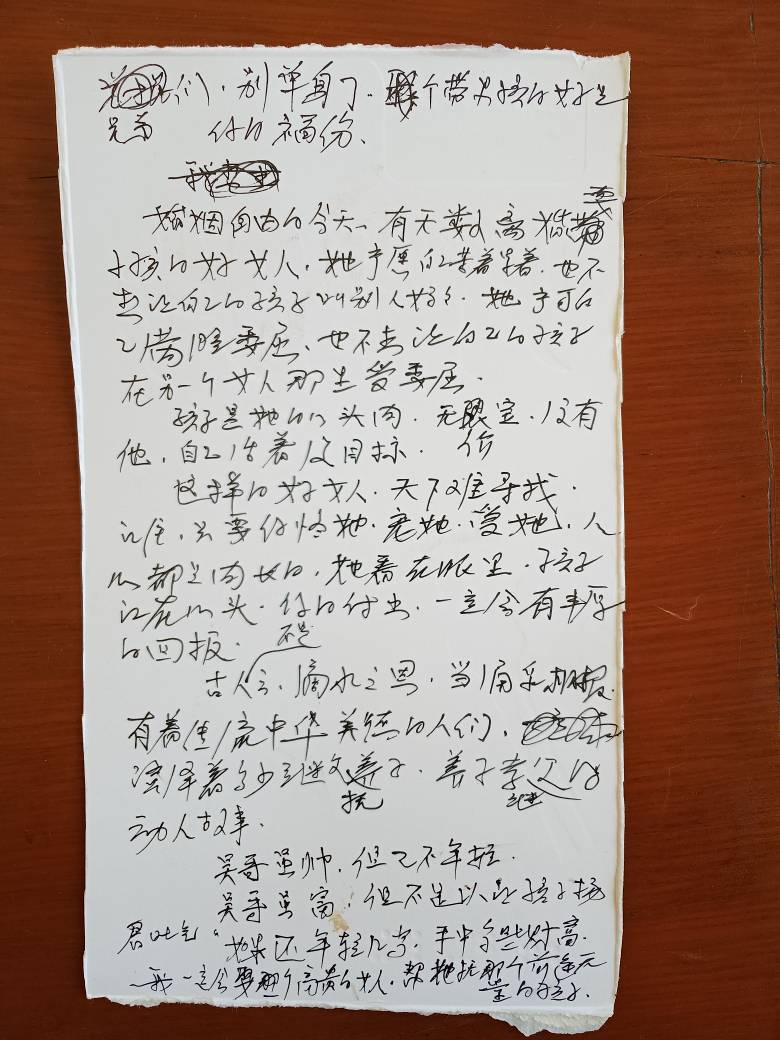 兄弟们，别单身了，娶个带男孩的女子是
你的福份、
婚姻自由的今天、有无数离婚带
子孩的好女人，她宁愿自己苦着累着，也不
想让自己的孩子叫别人好爹，她宁可自
己满腔委屈、也不想让自己的孩子
在另一个女人那里受委屈．
孩子是她的心头肉．无价宝．没有
他，自己活着没目标．
这样的好女人，天下难寻找．
记住，只要你怜她．宠她．爱她．人
心都是肉长的，她看在眼里．孩子
记在心头．你的付出，一定会有丰厚
的回报．
古人云，滴水之恩，当涌泉相报．
有着传统中华美德的人们，
演绎着多少继父抚养子．养子孝继父的
动人故事．
吴哥虽帅，但已不年轻．
吴哥虽富，但不足以让孩子扬
眉吐气"如果还年轻几岁．手中有些财富．
我一定会娶那个高贵的女人，帮她抚那个前途无
量的孩子．